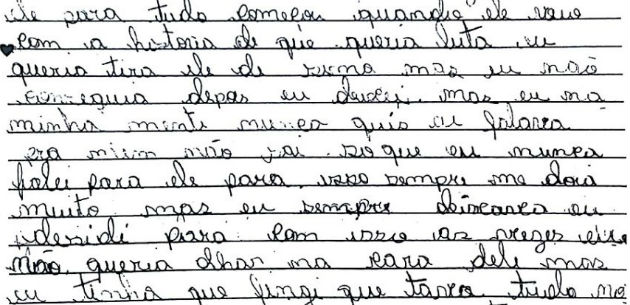 ele para tudo começou quando ele veio
com a historia de que queria luta eu
queria tira ele de cima mas eu não
conseguia depos eu deixei. mas eu na
minha mente nunca quis eu falava
pra mim não vai. so que eu nunca
falei para ele para. isso sempre me doia
muito mas eu sempre deixava eu
desidi para com isso as vezes eu
não queria olhar na cara dele mas
eu tinha que fingi que tava tudo